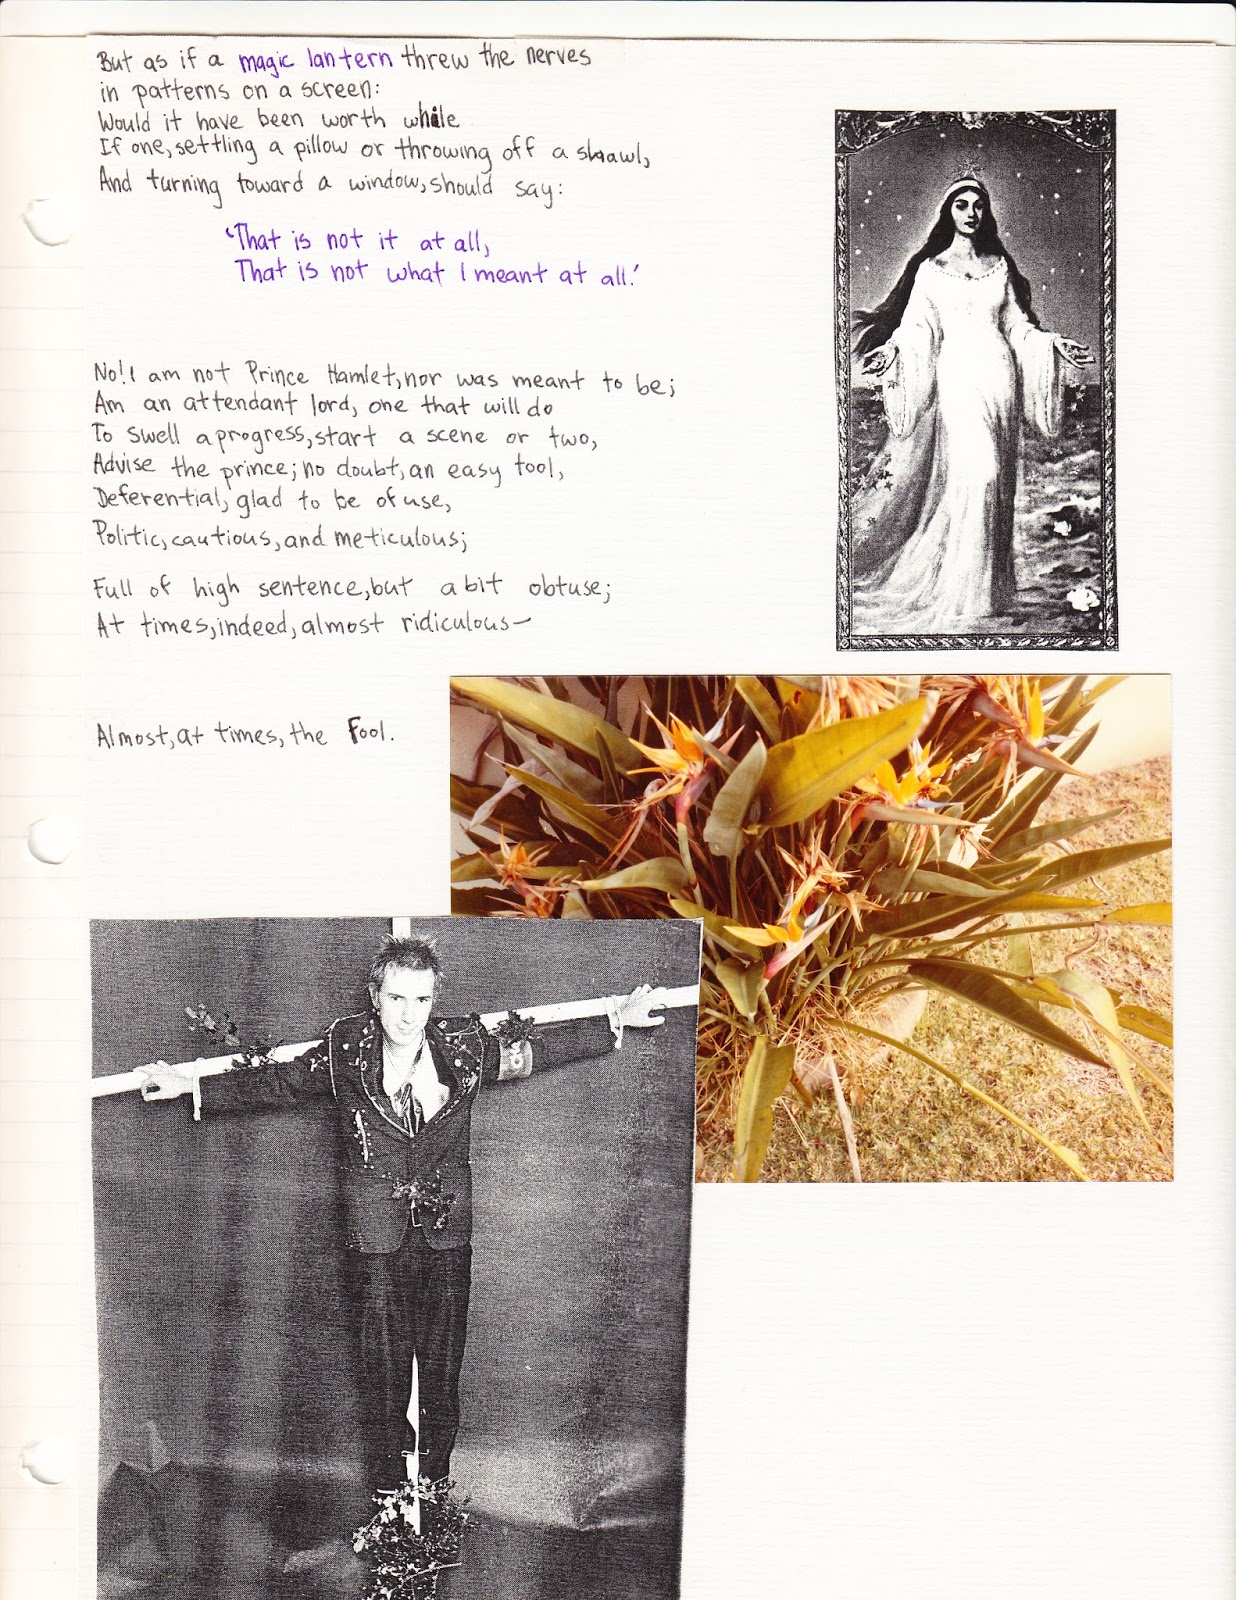 But as if a magic lantern threw the nerves
in patterns on a screen:
Would it have been worth while
If one, settling a pillow or throwing off a shawl,
And turning toward a window, should say:
'That is not it at all,
That is not what I meant at all.'
No! I am not Prince Hamlet, nor was meant to be;
Am an attendant lord, one that will do
To swell a progress, start a scene or two,
Advise the prince; no doubt, an easy tool,
Deferential, glad to be of use,
Politic, cautious, and meticulous;
Full of high sentence, but a bit obtuse;
At times, indeed, almost ridiculous—
Almost, at times, the Fool.